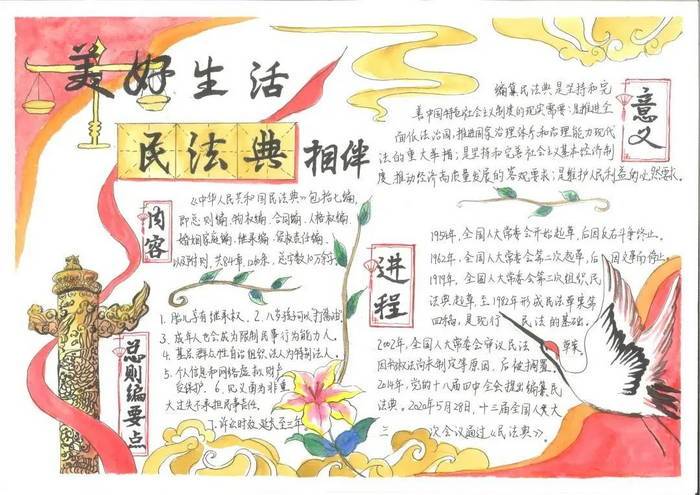 美好生活
民法典相伴
内容
《中华人民共和国民法典》包括七编,
即总则编、物权编、合同编、人格权编、
婚姻家庭编、继承编、侵权责任编,
以及附则,共84章,1260条,总字数10万余字。
总则编要点
1. 胎儿享有继承权。2. 八岁孩可以打酱油
3. 成年人也会成为限制民事行为能力人.
4. 基层群众性自治组织法人为特别法人.
5. 个人信息和网络虚拟财产
受保护. 6. 见义勇为非重
大过失不承担民事责任.
7. 诉讼时效延长至三年.
意义
编纂民法典是坚持和完
善中国特色社会主义制度的现实需要;是推进全
面依法治国、推进国家治理体系和治理能力现代
化的重大举措;是坚持和完善社会主义基本经济制
度、推动经济高质量发展的客观要求;是维护人民利益的必然要求。
进程
1954年,全国人大常委会开始起草,后因反右斗争终止。
1962年,全国人大常委会第二次起草,后因文革而停止。
1979年,全国人大常委会第三次组织民
法典起草,至1982年形成民法草案第
四稿,是现行民法的基础。
2002年,全国人大常委会审议民法草案,
因物权法尚未制定等原因,后被搁置。
2014年,党的十八届四中全会提出编纂民
法典。2020年5月28日,十三届全国人大
三次会议通过《民法典》。